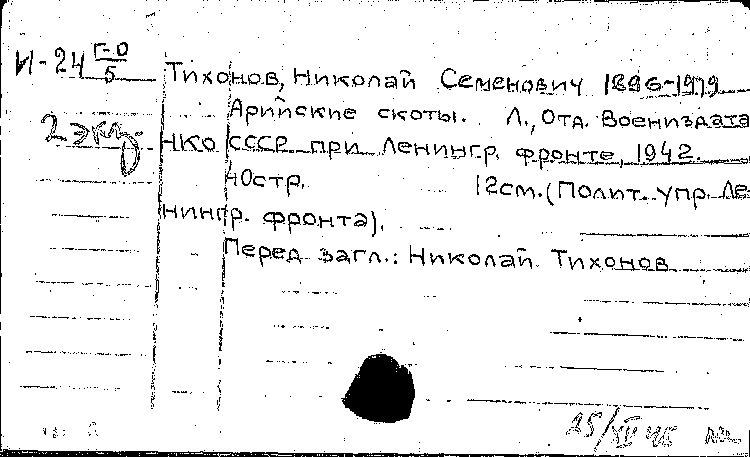 И-24 Г-О/5
Тихонов, Николай Семенович 1896-1979
Арийские скоты. Л., Отд. Воениздата
2 экз. НКО СССР при Ленингр. фронте, 1942.
40стр. 12см. (Полит. упр. Ле-
нингр. фронта).
Перед загл.: Николай Тихонов
25/XII 45